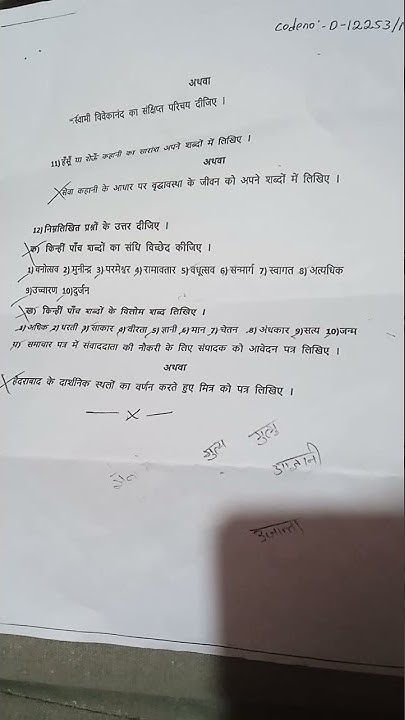 Codeno:- D-12253/
अथवा
स्वामी विवेकानंद का संक्षिप्त परिचय दीजिए ।
11) हँसूँ या रोऊँ कहानी का सारांश अपने शब्दों में लिखिए ।
अथवा
सेवा कहानी के आधार पर वृद्धावस्था के जीवन को अपने शब्दों में लिखिए ।
12) निम्नलिखित प्रश्नों के उत्तर दीजिए ।
क) किन्हीं पाँच शब्दों का संधि विच्छेद कीजिए ।
1) वनोत्सव 2) मुनीन्द्र 3) परमेश्वर 4) रामावतार 5) वधूत्सव 6) सन्मार्ग 7) स्वागत 8) अत्यधिक
9) उच्चारण 10) दुर्जन
ख) किन्हीं पाँच शब्दों के विलोम शब्द लिखिए ।
1) अधिक 2) धरती 3) साकार 4) वीरता 5) ज्ञानी 6) मान 7) चेतन 8) अंधकार 9) सत्य 10) जन्म
ग) समाचार पत्र में संवाददाता की नौकरी के लिए संपादक को आवेदन पत्र लिखिए ।
अथवा
हैदराबाद के दार्शनिक स्थलों का वर्णन करते हुए मित्र को पत्र लिखिए ।
— x —